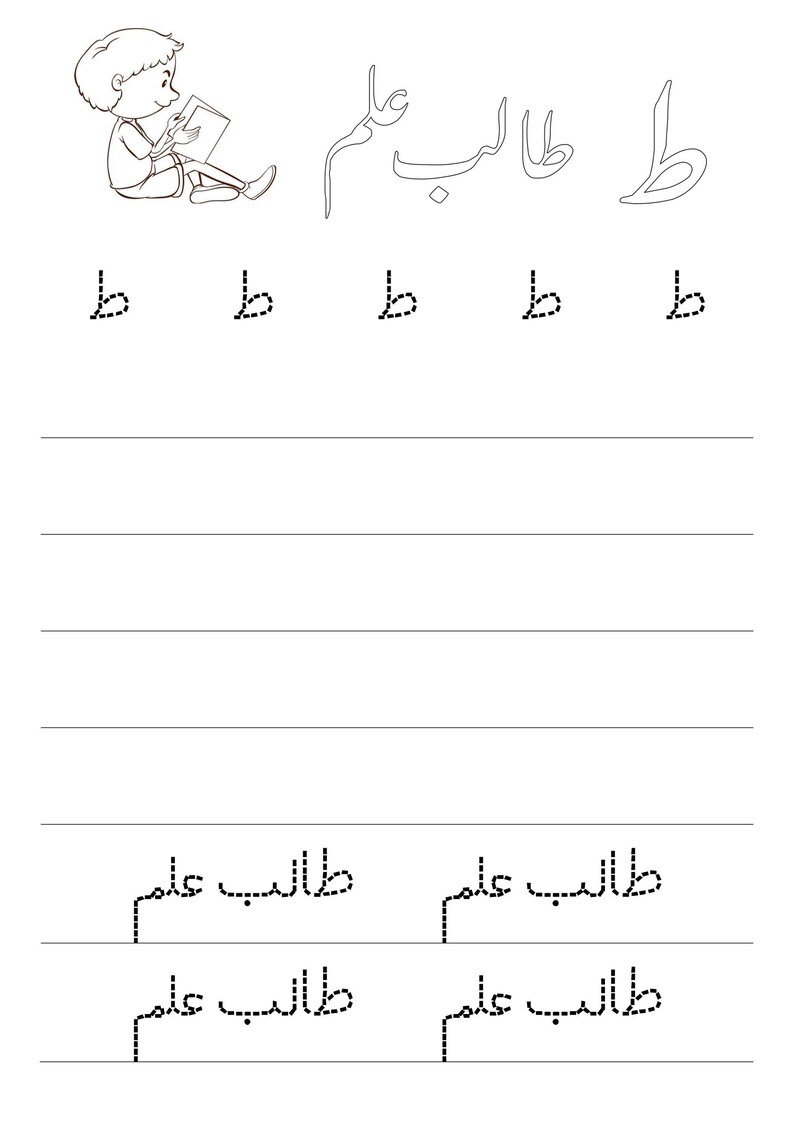 ط طالب علم
ط ط ط ط ط
طالب علم طالب علم
طالب علم طالب علم